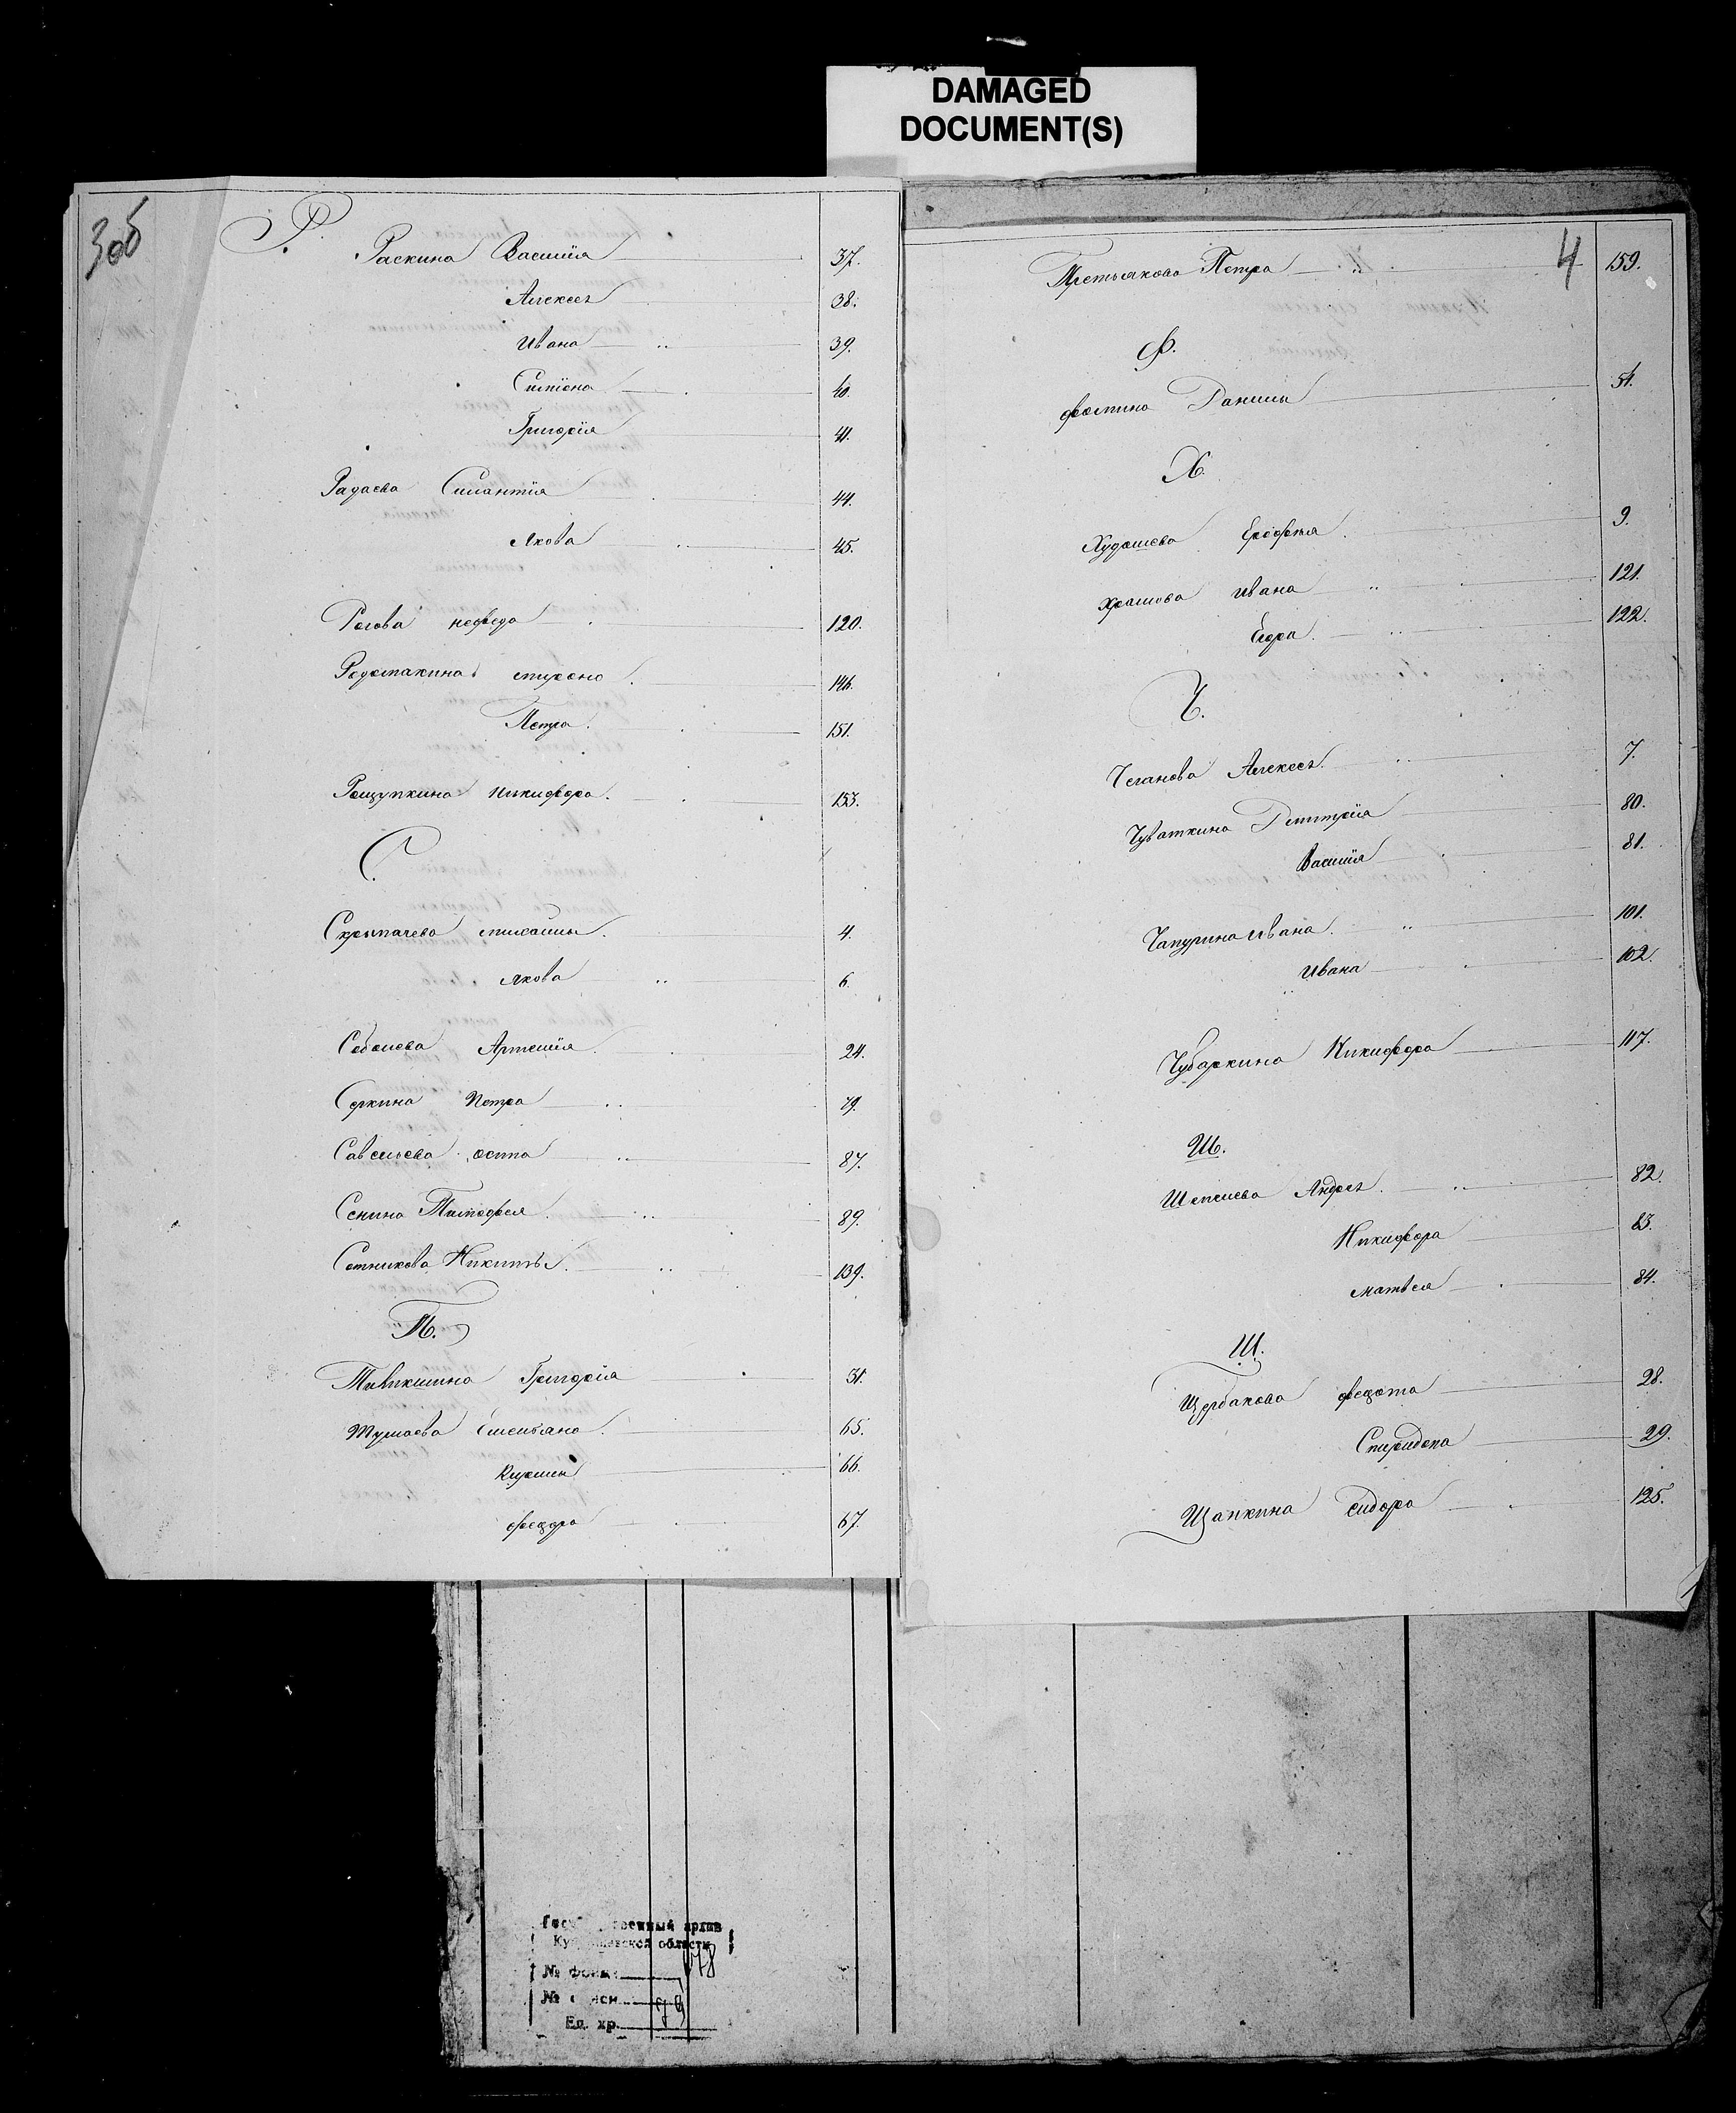 DAMAGED
DOCUMENT(S)
3об
Р.
Раскина Василія 37.
Алексея 38.
Ивана 39.
Симіона 40.
Григорія 41.
Радаева Силантія 44.
Якова 45.
Рогова 120.
146.
Петра 151.
Рощупкина Никифора 153.
С.
Скрыпачева 4.
Якова 6.
Соболева Артемія 24.
Серкина Петра 79.
Савельева Осипа 87.
Сенина Тимофея 89.
Сотникова Никиты 139.
Т.
Тивикшина Григорія 31.
Тумаева Емельяна 65.
Кузмы 66.
Федора 67.
4
Третьякова Петра 159.
Ф.
Данилы 51.
Х.
Худошева Ерофея 9.
Храмова Ивана 121.
Егора 122.
Ч.
Чеганова Алексея 7.
Чуваткина Дмитрія 80.
Василія 81.
Чапурина Ивана 101.
Ивана 102.
Чубаркина Никифора 117.
Ш.
Шепелева Андрея 82.
Никифора 83.
Матвея 84.
Щ.
Щербакова Федота 28.
Спиридона 29.
Щапкина Сидора 125.
архив
области
№ фонд
678
№
Ед. хр.